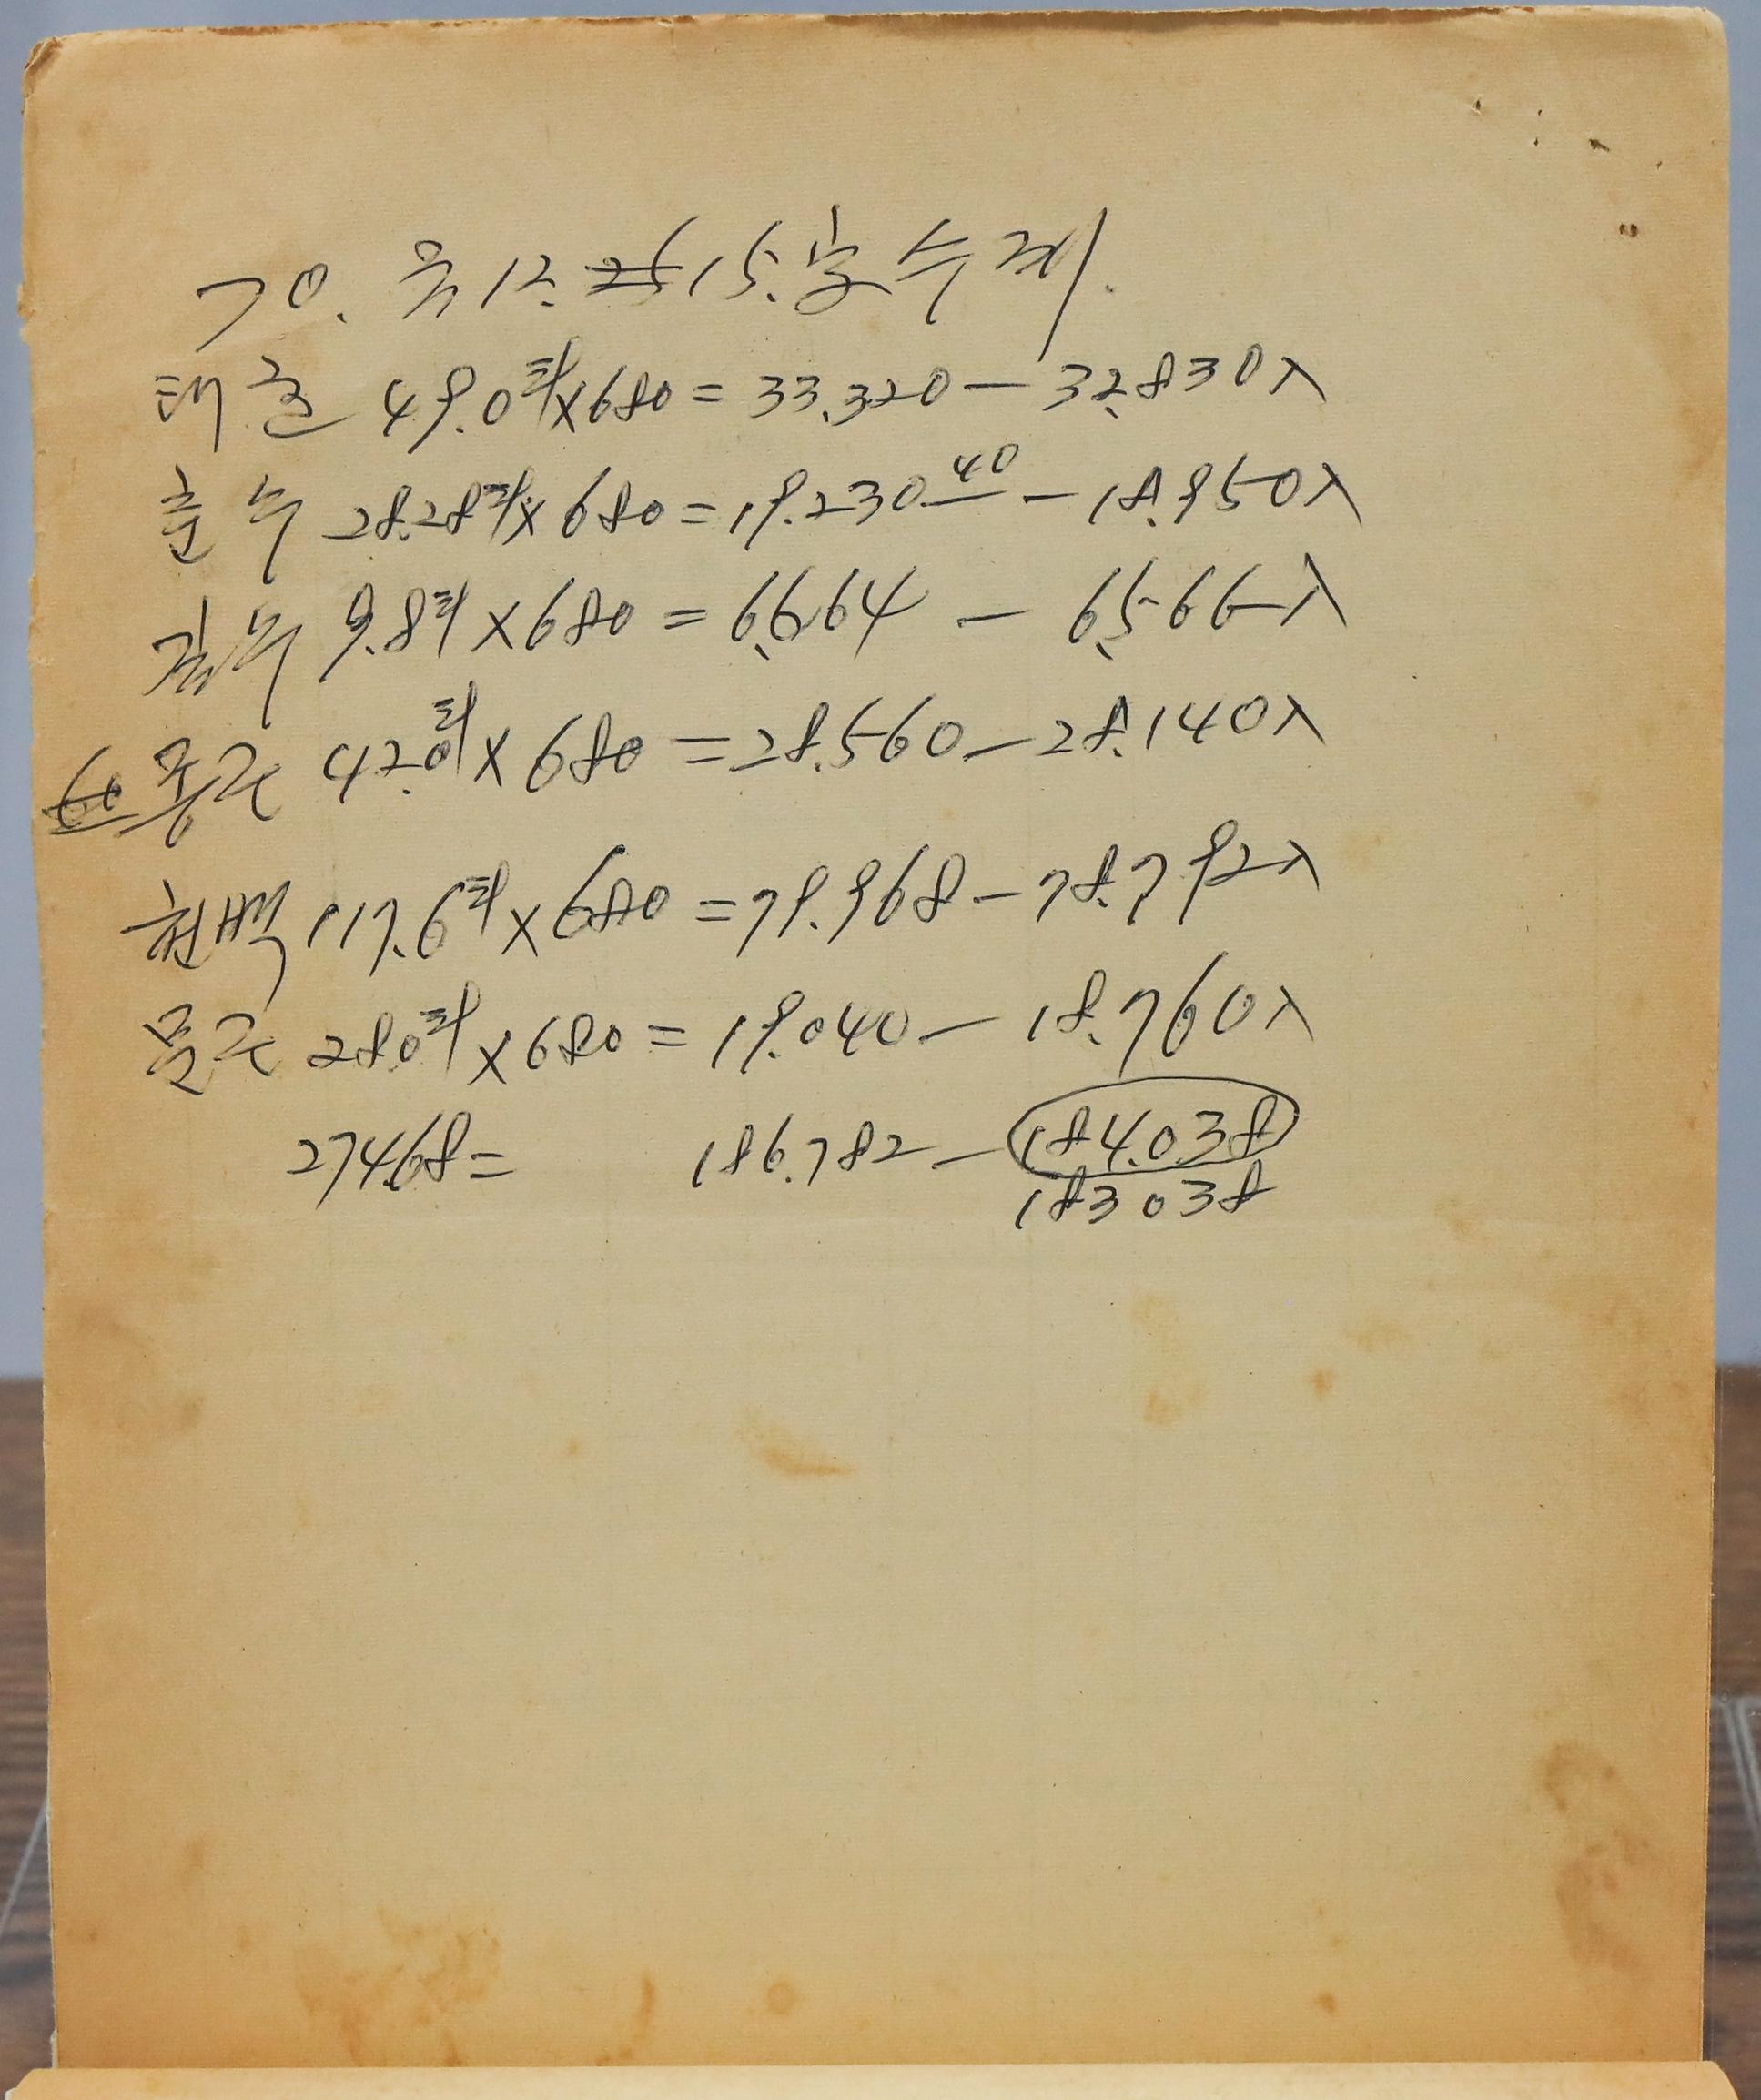 70. 음 12. 15. 분 수계
태준 49.0평×680 = 33.320 — 32.830入
춘수 28.28평×680 = 19.230.40 — 18.950入
김수 9.8평 × 680 = 6,664 — 6,566入
종근 42.0평 × 680 = 28.560 — 28.140入
천백 117.6평 × 680 = 79.968 — 78.792入
문근 28.0평 × 680 = 19.040 — 18.760入
274.68 = 186.782 — 184.038
183038